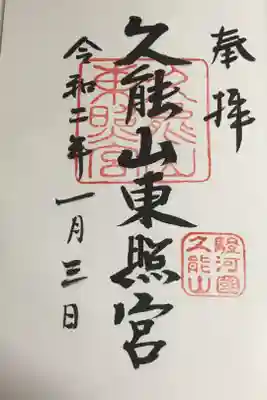 奉拝
駿河國
久能山
久能山東照宮
久能山
東照宮
令和二年
一月三日